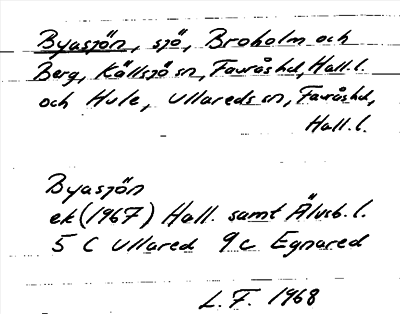 Byasjön, sjö, Broholm och
Berg, Källsjö sn, Faurås hd, Hall.l.
och Hule, Ullareds sn, Faurås hd,
Hall.l.
Byasjön
ek (1967) Hall. samt Älvsb.l.
5 C Ullared 9c Egnared
L.F. 1968